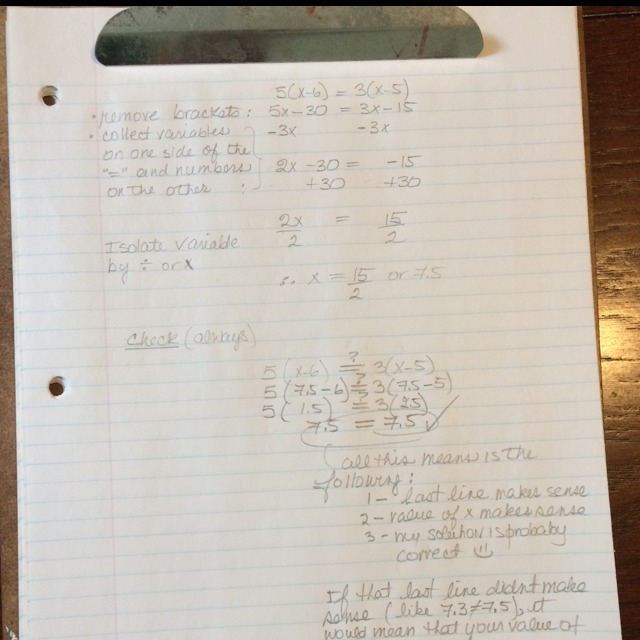 5(x-6) = 3(x-5)
• remove brackets: 5x-30 = 3x-15
• collect variables -3x -3x
on one side of the
"=" and numbers 2x -30 = -15
on the other +30 +30
2x/2 = 15/2
Isolate variable
by ÷ or x
∴ x = 15/2 or 7.5
Check (always)
5(x-6) ≟ 3(x-5)
5(7.5-6) ≟ 3(7.5-5)
5(1.5) ≟ 3(2.5)
7.5 = 7.5 ✓
all this means is the
following:
1- last line makes sense
2- value of x makes sense
3- my solution is probaby
correct ☺
If that last line didnt make
sense (like 7.3≠7.5), it
would mean that your value of